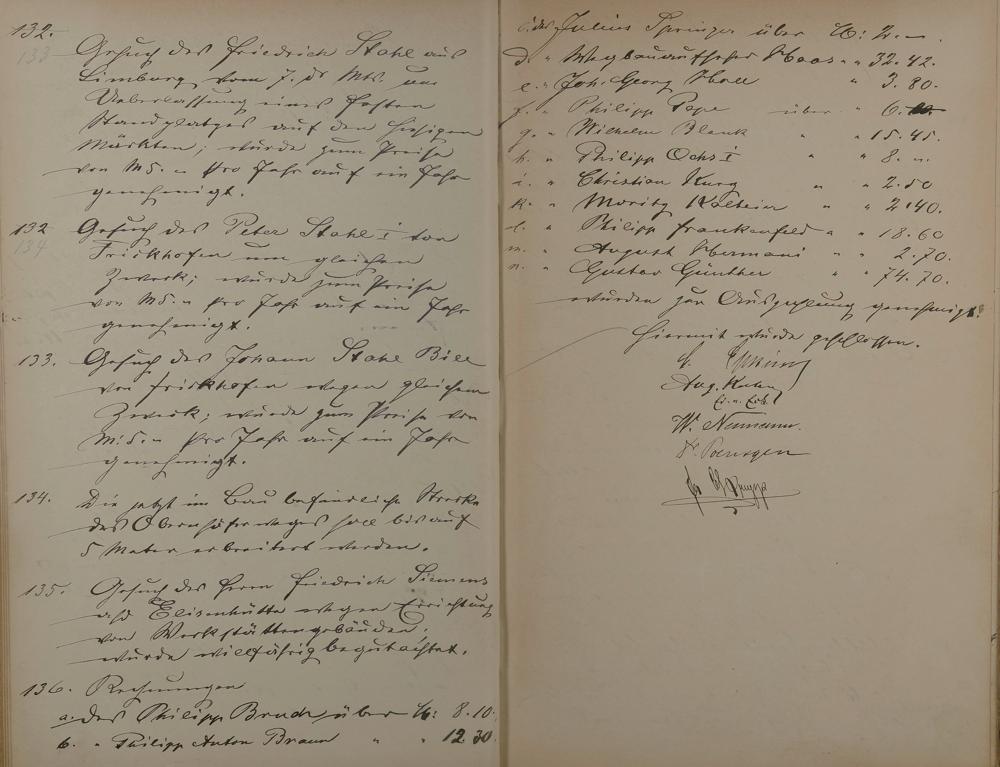 132.
133
Gesuch des Friedrich Stahl aus
Limburg vom 7. ds Mts. um
Ueberlassung eines festen
Standplatzes auf den hiesigen
Märkten; wurde zum Preise
von M 5. - pro Jahr auf ein Jahr
genehmigt.
132
134
Gesuch des Peter Stahl I von
Frickhofen um gleichen
Zweck; wurde zum Preise
von M 5. - pro Jahr auf ein Jahr
genehmigt.
133. Gesuch des Johann Stahl Bill
von Frickhofen wegen gleichem
Zweck; wurde zum Preise von
M: 5. - pro Jahr auf ein Jahr
genehmigt.
134. Die jetzt im Bau befindliche Strecke
des Obernhöferweges soll bis auf
5 Meter erbreitert werden.
135. Gesuch des Herrn Friedrich Siemens
auf Elisenhütte wegen Errichtung
von Werkstättengebäuden.
wurde willfährig begutachtet.
136. Rechnungen
a. des Philipp Bruch über M: 8.10.
b. " Philipp Anton Braun " " 12 30.
c. des Julius Springer über M: 2. —.
d. " Wegbauaufseher Haas " " 32.42.
e. " Joh. Georg Holl " 3.80.
f. " Philipp Pepe über " 6.
g. " Wilhelm Blank " " 15.45.
h. " Philipp Ochs I " " 8. "
i. " Christian Kurz " " 2.50
k. " Moritz " " 2.40.
l. " Philipp Frankenfeld " " 18.60
m. " August Hermani " " 2.70.
n. " Gustav Günther " " 74.70.
wurden zur Auszahlung genehmigt.
Hiermit wurde geschlossen.
Aug. Kuhn
W. Neumann.